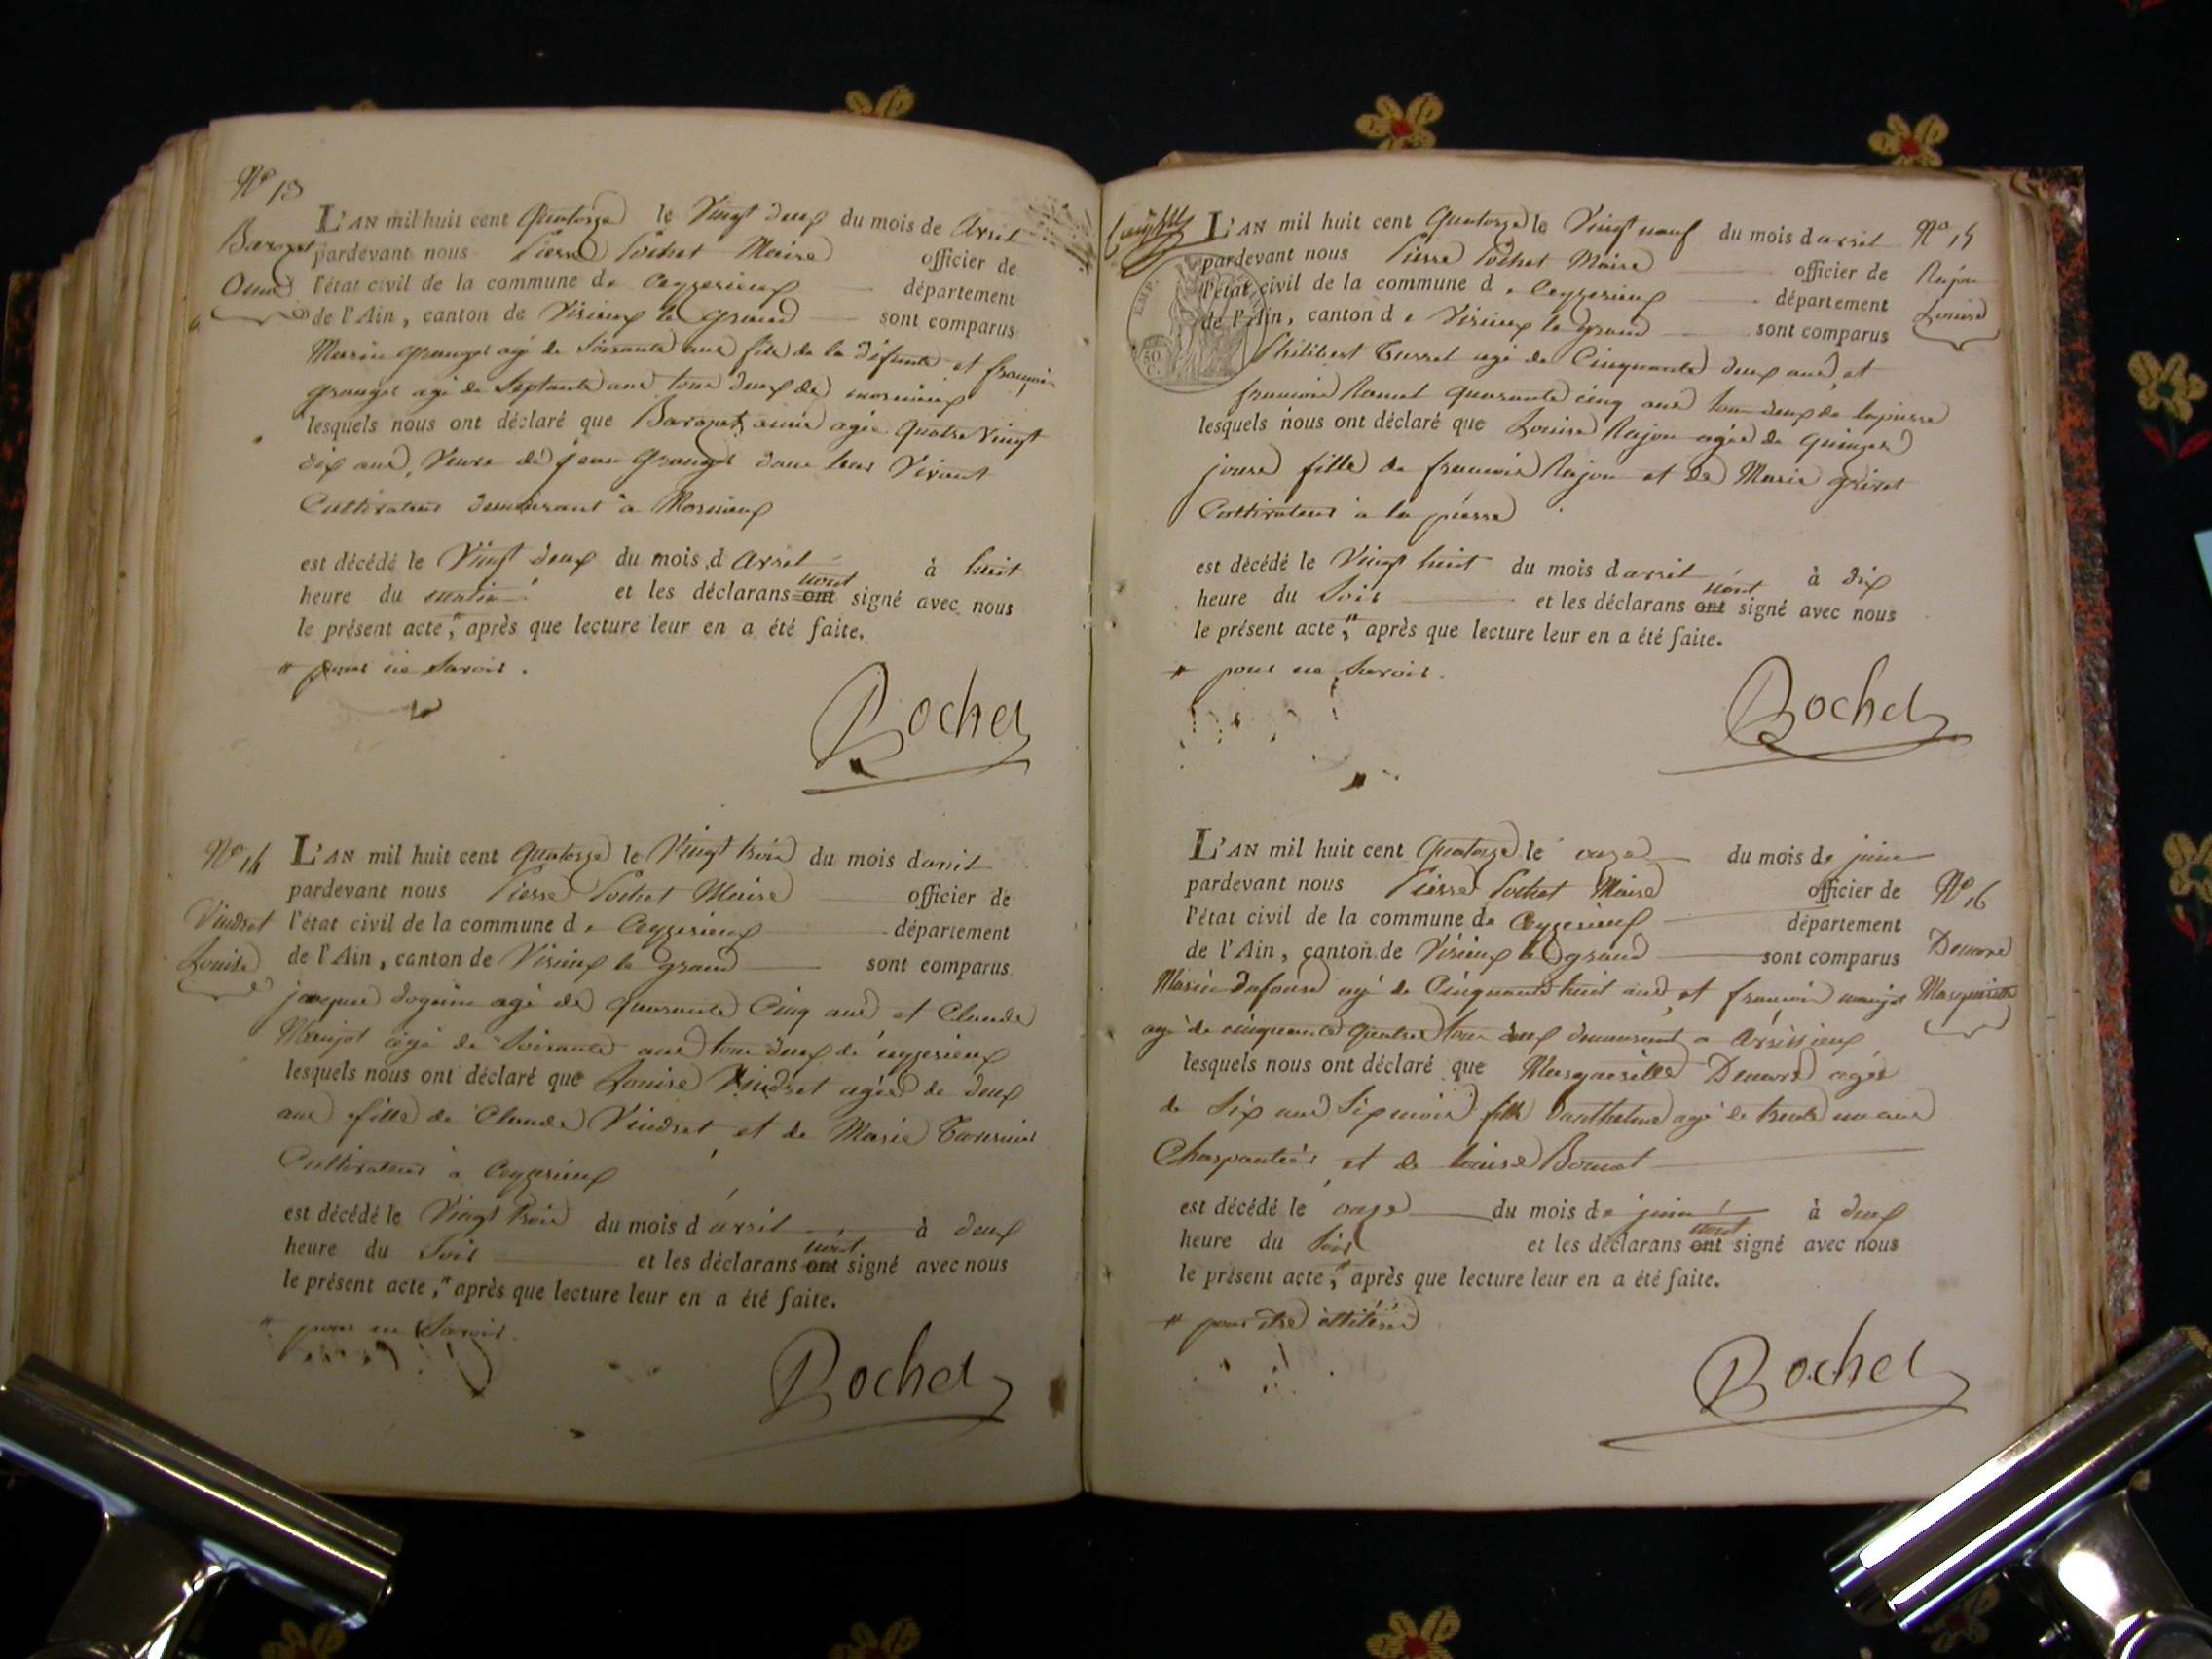 Nº 13
Baronet
Anne
L'AN mil huit cent Quatorze le Vingt deux du mois de Avril
pardevant nous Pierre Pochet Maire officier de
l'état civil de la commune de Ceyzerieux département
de l'Ain, canton de Virieux le grand sont comparus
Marin granget agé de Soixante ans fils de la défunte et françois
granget agé de Septante ans tous deux de
lesquels nous ont déclaré que Baronet anne agée Quatre Vingt
dix ans, Veuve de jean Granget dans leur Vivant
Cultivateurs demeurant à
est décédé le Vingt deux du mois d Avril à huit
heure du matin et les déclarans ont n'ont signé avec nous
le présent acte," après que lecture leur en a été faite.
" pour ne Savoir.
Pochet
Nº 14
Vindret
Louise
L'AN mil huit cent Quatorze le Vingt trois du mois davril
pardevant nous Pierre Pochet Maire officier de
l'état civil de la commune de Ceyzerieux département
de l'Ain, canton de Virieux le grand sont comparus
jacques agé de quarante Cinq ans et Claude
Manjot agé de Soixante ans tous deux de ceyzerieux
lesquels nous ont déclaré que Louise Vindret agée de deux
ans fille de Claude Vindret et de Marie
Cultivateurs à Ceyzerieux
est décédé le Vingt trois du mois d avril à deux
heure du Soir et les déclarans ont n'ont signé avec nous
le présent acte," après que lecture leur en a été faite.
" pour ne Savoir.
Pochet
L'AN mil huit cent Quatorze le Vingt neuf du mois d avril
pardevant nous Pierre Pochet Maire officier de
l'état civil de la commune de Ceyzerieux département
de l'Ain, canton de Virieux le grand sont comparus
Philibert agé de Cinquante deux ans, et
francois Ramel quarante cinq ans tous deux de lapierre
lesquels nous ont déclaré que Louise Rajon agée de quinze
jours fille de francois Rajon et de Marie grivet
Cultivateurs à la pierre
est décédé le Vingt huit du mois d avril à dix
heure du Soir et les déclarans ont n'ont signé avec nous
le présent acte," après que lecture leur en a été faite.
" pour ne Savoir.
Pochet
Nº 15
Rajon
Louise
EMP.
50
C.
L'AN mil huit cent Quatorze le onze du mois de juin
pardevant nous Pierre Pochet Maire officier de
l'état civil de la commune de Ceyzerieux département
de l'Ain, canton de Virieux le grand sont comparus
Marin Dufour agé de Cinquante huit ans, et francois manjot
agé de cinquante Quatre tous deux demeurant a
lesquels nous ont déclaré que Margueritte agée
de Six ans Six mois fille Danthelme agé de trente un ans
Charpantier et de Louise
est décédé le onze du mois de juin à deux
heure du Soir et les déclarans ont n'ont signé avec nous
le présent acte," après que lecture leur en a été faite.
" pour être illitéré
Pochet
Nº 16
Margueritte